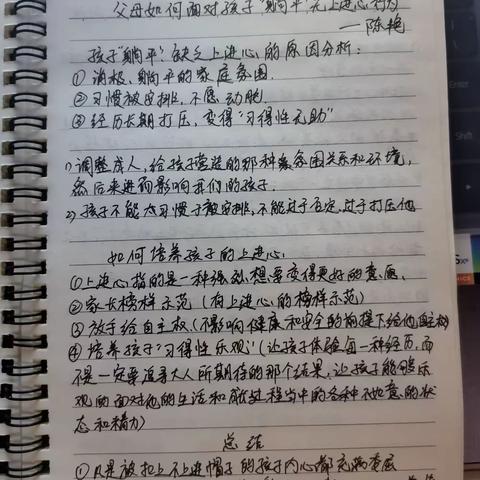 父母如何面对孩子"躺平"无上进心行为
—陈艳
孩子"躺平"缺乏上进心的原因分析:
① 消极、躺平的家庭氛围.
② 习惯被安排,不愿动脑.
③ 经历长期打压,变得"习得性无助"
1) 调整成人,给孩子营造的那种氛围关系和环境,
然后来进而影响我们的孩子.
2) 孩子不能太习惯于被安排,不能过于否定,过于打压他
如何培养孩子的上进心
① 上进心指的是一种强烈想要变得更好的意愿.
② 家长榜样示范(有上进心的榜样示范)
③ 放手给自主权(不影响健康和安全的前提下给他自主权)
④ 培养孩子"习得性乐观"(让孩子体验每一种经历,而
不是一定要追寻大人所期待的那个结果,让孩子能够乐
观的面对他的生活和成长过程当中的各种不如意的状
态和精力)
总结
① 凡是被扣上不上进帽子的孩子内心都充满委屈